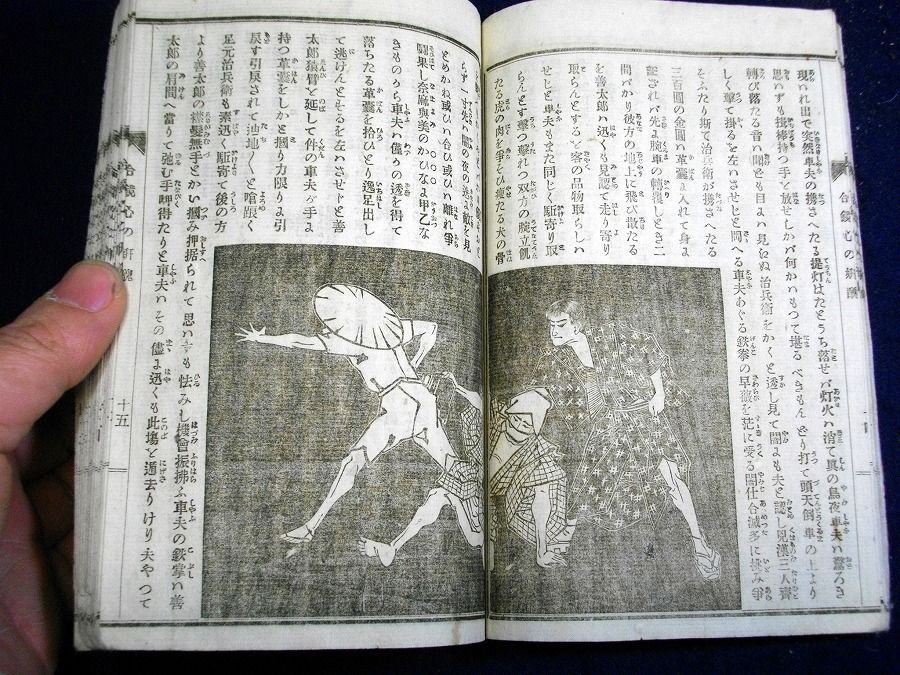 現れ出で突然車夫の携さへたる提灯はたとうち落せバ灯火ハ消て真の烏夜車夫ハ驚ろき
思ハずも揖棒持つ手を放せしかバ何かハもつて堪る べきもんどり打て頭天倒車の上より
轉び落たる音ハ聞ども目よハ見ぬ治兵衛をかくと透し見て闇よも夫と認し見漢二人齊
しく撃て掛るを左ハさせじと鬩へる車夫あぐる鉄拳の早𫝶を茫に受る闇仕合滅多に挑み爭
そふたり斯て治兵衛が携さへたる
三百圓の金圓ハ革嚢よ入れて身よ
さればの先よ腕車の轉覆しとき二
間バかり彼方の地上に飛び散たる
を善太郎ハ迅くも見認て走り寄り
取らんとするを客の品物取らしハ
せじと車夫もまた同じく駈寄り取
らんとす撃つ撃れつ双方の腕立飢
たる虎の肉を爭そひ瘦たる犬の骨
合鏡心の研
とめかね或ひハ合ひ或ひハ離れ爭
鬪果し奈麻與美のかひなよ甲乙な
きものから車夫ハ儘うの透を得て
落ちたる革嚢を拾ひとり逸足出し
て逃げんとするを左ハさせじと善
太郎猿臂を延して件の車夫が手よ
持つ革嚢をしかと摑り力限りよ引
戻す引戻されて汕地くと喰蹶く
足元治兵衛も素迅く駈寄て後の方
より善太郎の襟髪無手とかい摑み押据られて思ハずも怯みし機會振拂ふ車夫の鉄掌ハ善
太郎の眉間へ當りて弛む手首得たりと車夫ハその儘よ迅くも此塲を遁去りけり夫やつて
合鏡心の研
十五